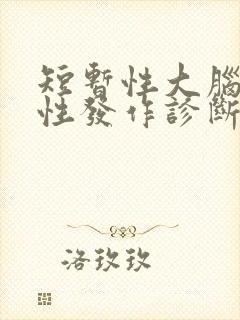 短暫性大腦
性發作診斷
洛玫玫